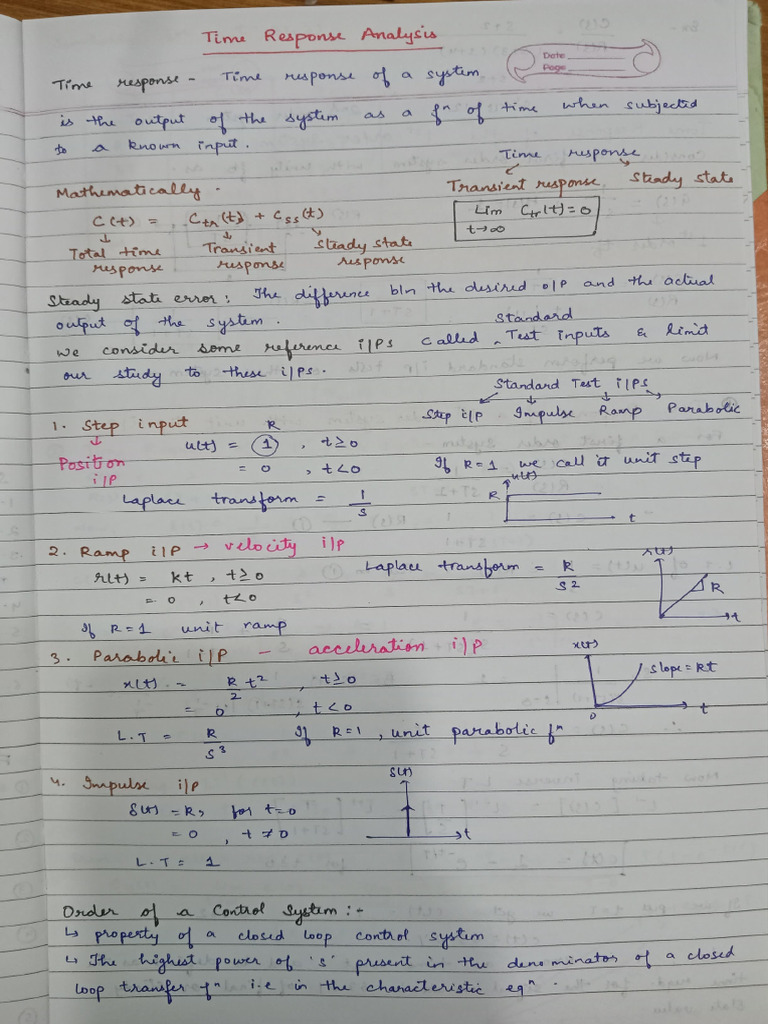 Time Response Analysis
Date
Page
Time response - Time response of a system
is the output of the system as a fⁿ of time when subjected
to a known input.
Time response
Transient response Steady state
Lim Ctr(t) = 0
t→∞
Mathematically -
C(t) = Ctr(t) + Css(t)
Total time response
Transient response
Steady state response
Steady state error: The difference b/n the desired o/p and the actual
output of the system.
We consider some reference i/ps called Standard Test inputs & limit
our study to these i/ps.
Standard Test i/ps
Step i/p Impulse Ramp Parabolic
1. Step input
Position i/p
R
u(t) = 1 , t≥0
= 0 , t<0
If R=1 we call it unit step
Laplace transform = 1/s
u(t)
R
t
2. Ramp i/p → velocity i/p
r(t) = kt , t≥0
= 0 , t<0
Laplace transform = R/s²
r(t)
R
t
If R=1 unit ramp
3. Parabolic i/p - acceleration i/p
x(t) = R/2 t² , t≥0
= 0 , t<0
x(t)
slope = Rt
0
t
L.T = R/s³ If R=1, unit parabolic fⁿ
4. Impulse i/p
δ(t) = R, for t=0
= 0 , t≠0
L.T = 1
δ(t)
t
Order of a Control System:-
↳ property of a closed loop control system
↳ The highest power of 's' present in the denominator of a closed
loop transfer fⁿ i.e in the characteristic eqⁿ.